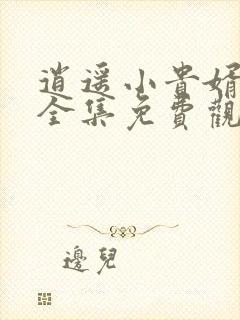 逍遥小貴婿
全集免費觀
邊兒